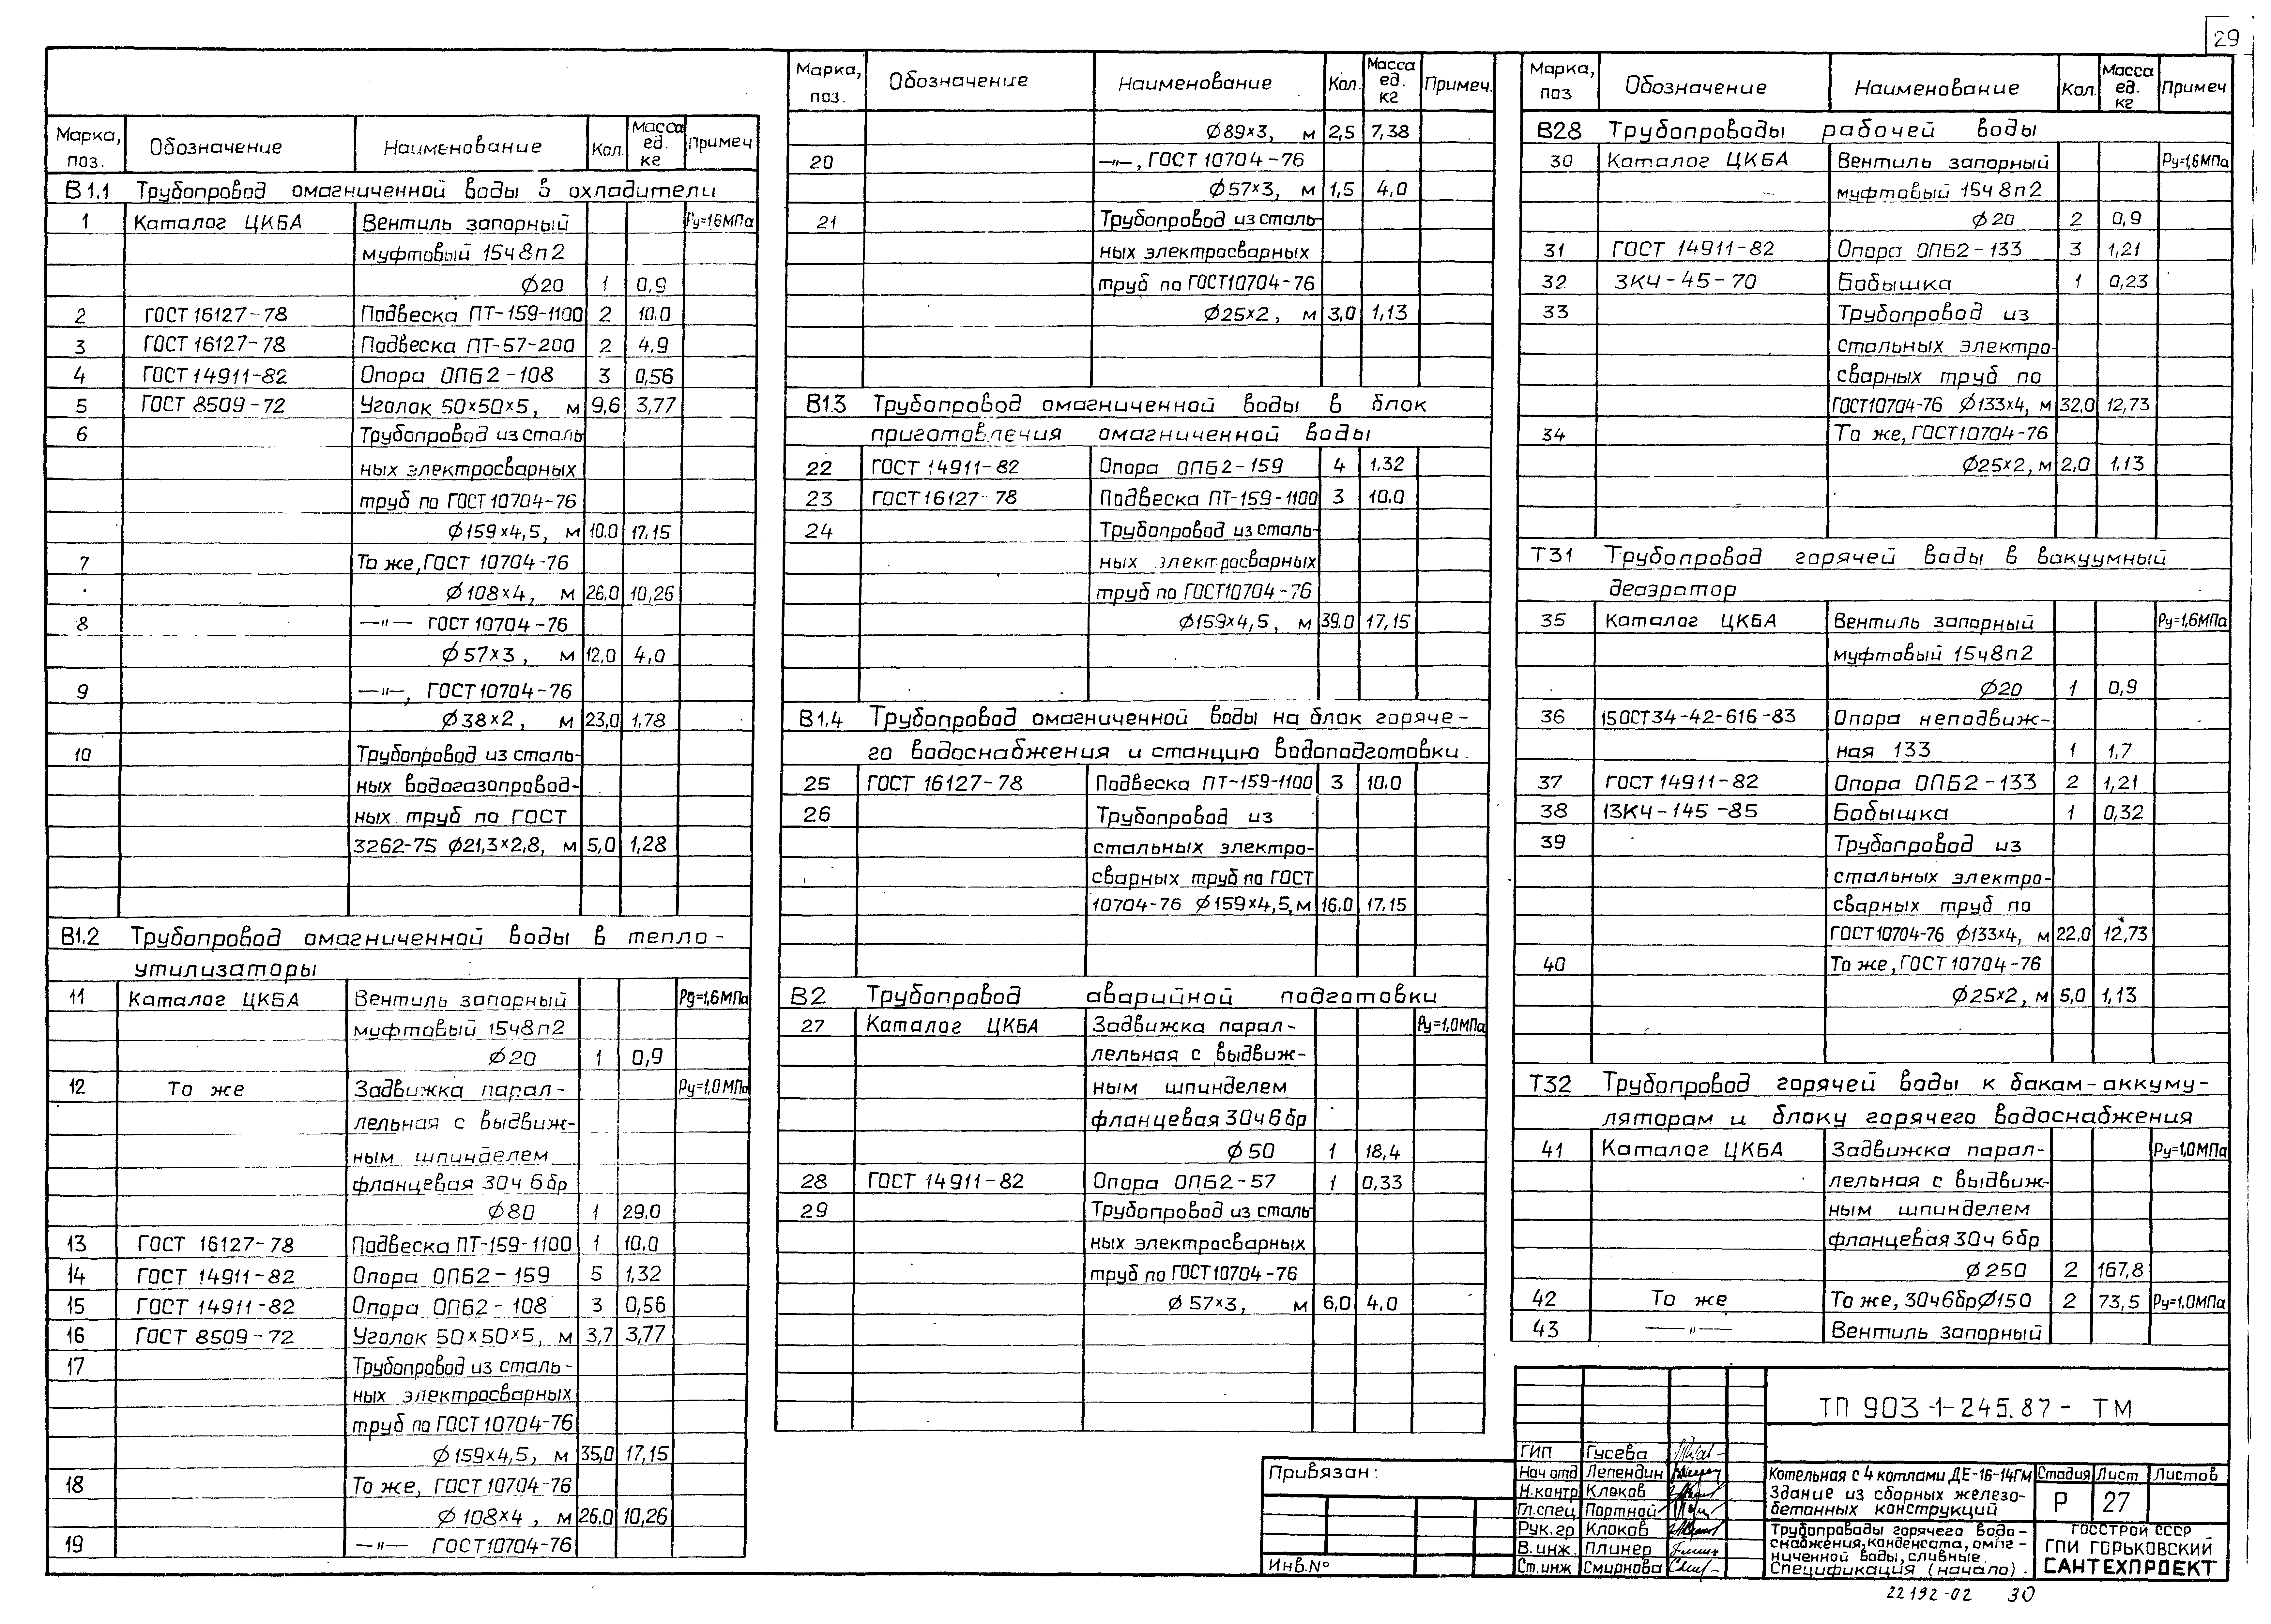 29
Марка, поз. Обозначение Наименование Кол. Масса ед. кг Примеч
В1.1 Трубопровод омагниченной воды в охладители
1 Каталог ЦКБА Вентиль запорный Ру=1,6МПа
муфтовый 15ч8п2
Ф20 1 0,9
2 ГОСТ 16127-78 Подвеска ПТ-159-1100 2 10.0
3 ГОСТ 16127-78 Подвеска ПТ-57-200 2 4.9
4 ГОСТ 14911-82 Опора ОПБ2-108 3 0,56
5 ГОСТ 8509-72 Уголок 50×50×5, м 9,6 3,77
6 Трубопровод из сталь
ных электросварных
труб по ГОСТ 10704-76
Ф159×4,5, м 10.0 17.15
7 То же, ГОСТ 10704-76
Ф108×4, м 26,0 10,26
8 —"— ГОСТ 10704-76
Ф57×3, м 12,0 4,0
9 —"—, ГОСТ 10704-76
Ф38×2, м 23,0 1,78
10 Трубопровод из сталь-
ных водогазопровод-
ных труб по ГОСТ
3262-75 Ф21,3×2,8, м 5,0 1,28
В1.2 Трубопровод омагниченной воды в тепло-
утилизаторы
11 Каталог ЦКБА Вентиль запорный Ру=1,6МПа
муфтовый 15ч8п2
Ф20 1 0,9
12 То же Задвижка парал- Ру=1,0МПа
лельная с выдвиж-
ным шпинделем
фланцевая 30ч6бр
Ф80 1 29.0
13 ГОСТ 16127-78 Подвеска ПТ-159-1100 1 10.0
14 ГОСТ 14911-82 Опора ОПБ2-159 5 1,32
15 ГОСТ 14911-82 Опора ОПБ2-108 3 0,56
16 ГОСТ 8509-72 Уголок 50×50×5, м 3,7 3,77
17 Трубопровод из сталь-
ных электросварных
труб по ГОСТ 10704-76
Ф159×4,5, м 35,0 17,15
18 То же, ГОСТ 10704-76
Ф108×4, м 26,0 10,26
19 —"— ГОСТ 10704-76
Марка, поз. Обозначение Наименование Кол. Масса ед. кг Примеч.
Ф89×3, м 2,5 7,38
20 —"—, ГОСТ 10704-76
Ф57×3, м 1,5 4,0
21 Трубопровод из сталь-
ных электросварных
труб по ГОСТ10704-76
Ф25×2, м 3,0 1,13
В1.3 Трубопровод омагниченной воды в блок
приготовления омагниченной воды
22 ГОСТ 14911-82 Опора ОПБ2-159 4 1.32
23 ГОСТ 16127-78 Подвеска ПТ-159-1100 3 10.0
24 Трубопровод из сталь-
ных электросварных
труб по ГОСТ10704-76
Ф159×4,5, м 39.0 17,15
В1.4 Трубопровод омагниченной воды на блок горяче-
го водоснабжения и станцию водоподготовки.
25 ГОСТ 16127-78 Подвеска ПТ-159-1100 3 10.0
26 Трубопровод из
стальных электро-
сварных труб по ГОСТ
10704-76 Ф159×4,5, м 16.0 17.15
В2 Трубопровод аварийной подготовки
27 Каталог ЦКБА Задвижка парал- Ру=1,0МПа
лельная с выдвиж-
ным шпинделем
фланцевая 30ч6бр
Ф50 1 18,4
28 ГОСТ 14911-82 Опора ОПБ2-57 1 0,33
29 Трубопровод из сталь
ных электросварных
труб по ГОСТ10704-76
Ф57×3, м 6,0 4.0
Марка, поз Обозначение Наименование Кол. Масса ед. кг Примеч
В28 Трубопроводы рабочей воды
30 Каталог ЦКБА Вентиль запорный Ру=1,6МПа
муфтовый 15ч8п2
Ф20 2 0,9
31 ГОСТ 14911-82 Опора ОПБ2-133 3 1,21
32 ЗКЧ-45-70 Бобышка 1 0,23
33 Трубопровод из
стальных электро-
сварных труб по
ГОСТ10704-76 Ф133×4, м 32.0 12,73
34 То же, ГОСТ10704-76
Ф25×2, м 2,0 1,13
Т31 Трубопровод горячей воды в вакуумный
деаэратор
35 Каталог ЦКБА Вентиль запорный Ру=1,6МПа
муфтовый 15ч8п2
Ф20 1 0,9
36 15ОСТ34-42-616-83 Опора неподвиж-
ная 133 1 1,7
37 ГОСТ 14911-82 Опора ОПБ2-133 2 1,21
38 13КЧ-145-85 Бобышка 1 0,32
39 Трубопровод из
стальных электро-
сварных труб по
ГОСТ10704-76 Ф133×4, м 22.0 12,73
40 То же, ГОСТ 10704-76
Ф25×2, м 5,0 1,13
Т32 Трубопровод горячей воды к бакам-аккуму-
ляторам и блоку горячего водоснабжения
41 Каталог ЦКБА Задвижка парал- Ру=1,0МПа
лельная с выдвиж-
ным шпинделем
фланцевая 30ч6бр
Ф250 2 167,8
42 То же То же, 30ч6брФ150 2 73,5 Ру=1.0МПа
43 —"— Вентиль запорный
ТП 903-1-245.87- ТМ
Привязан:
Инв.N°
ГИП Гусева
Нач отд Лепендин
Н.контр Клоков
Гл.спец Портной
Рук.гр Клоков
В.инж. Плинер
Ст.инж Смирнова
Котельная с 4 котлами ДЕ-16-14ГМ
Здание из сборных железо-
бетонных конструкций
Стадия Лист Листов
Р 27
Трубопроводы горячего водо-
снабжения, конденсата, омаг-
ниченной воды, сливные.
Спецификация (начало).
ГОССТРОЙ СССР
ГПИ ГОРЬКОВСКИЙ
САНТЕХПРОЕКТ
22192-02 30